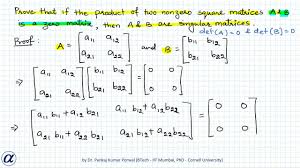 Prove that if the product of two nonzero square matrices A & B
is a zero matrix, then A & B are singular matrices.
def(A) = 0 & def(B) = 0
Proof:
A = [a11 a12 a21 a22] and B = [b11 b12 b21 b22]
⇒ [a11 a12 a21 a22] [b11 b12 b21 b22] = [0 0 0 0]
⇒ [a11 b11 + a12 b21 a11 b12 + a12 b22 a21 b11 + a22 b21 a21 b12 + a22 b22] = [0 0 0 0]
α
by Dr. Pankaj Kumar Porwal (BTech - IIT Mumbai, PhD - Cornell University)